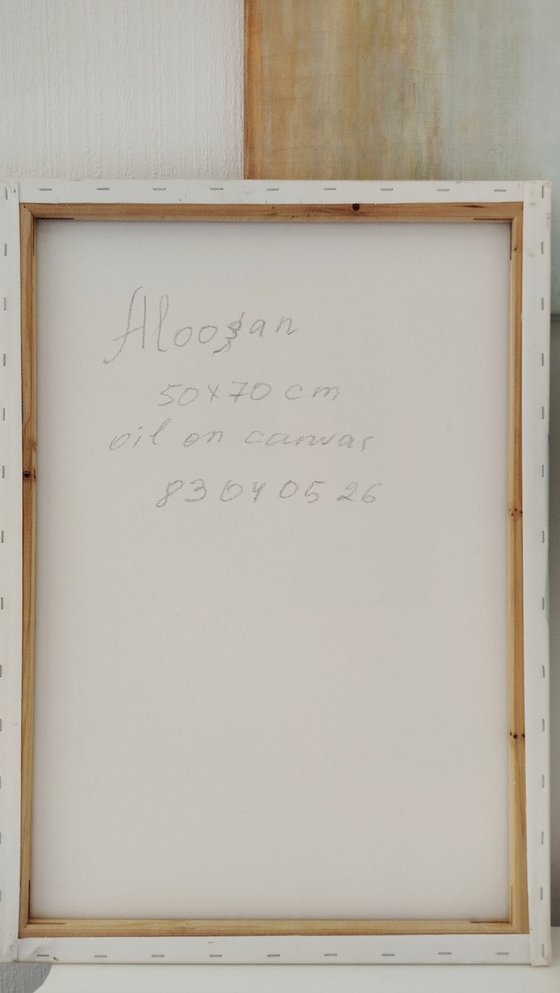 Aloozan
50x70 cm
oil on canvas
83 04 05 26